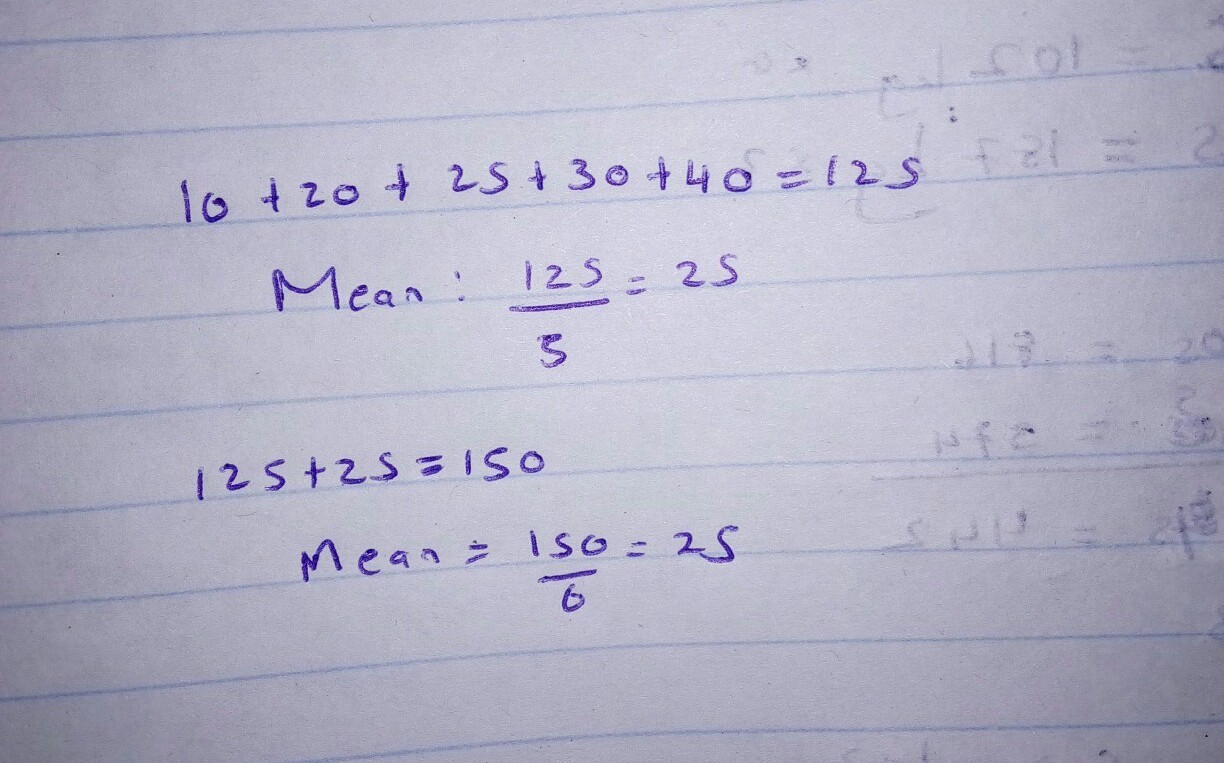 10 + 20 + 25 + 30 + 40 = 125
Mean : 125/5 = 25
125 + 25 = 150
Mean = 150/6 = 25